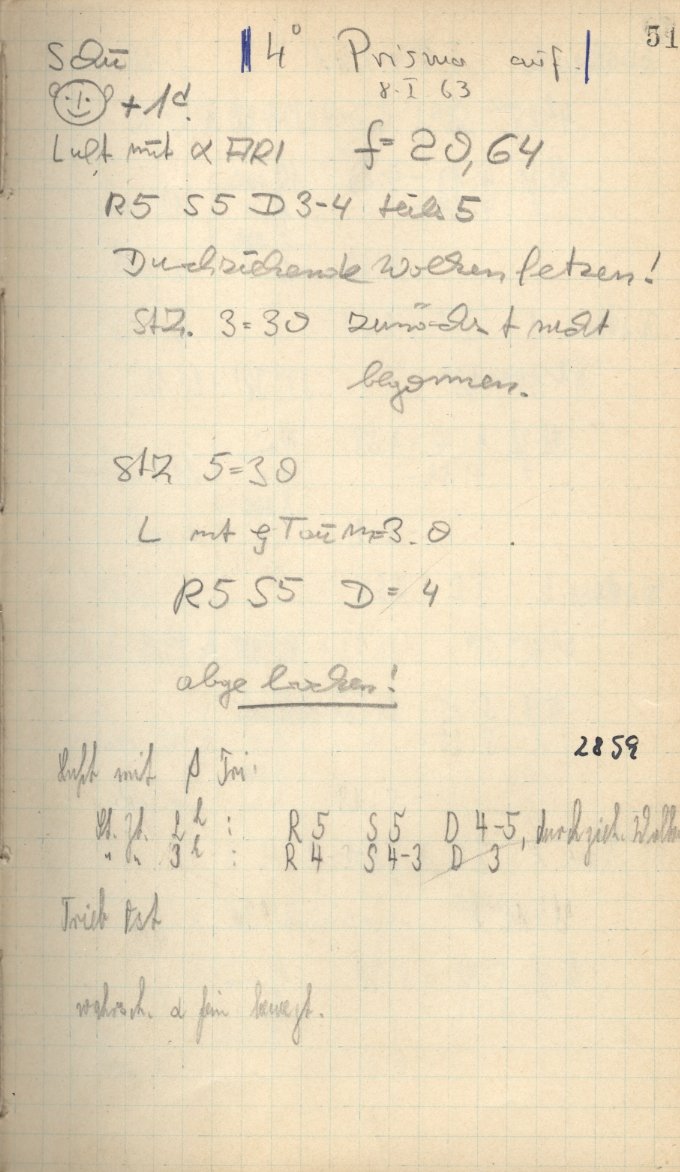 51
Schü 4° Prisma auf
8. I 63
+ 1d.
Luft mit α ARI f= 20,64
R5 S5 D3-4 teils 5
Durchziehende Wolkenfetzen!
StZ. 3=30 zunächst nicht
begonnen.
StZ 5=30
L mit Tau m=3.0
R5 S5 D=4
abgebrochen!
2859
Luft mit β Tri.
St. Zt. 2h : R5 S5 D 4-5, durchzieh. Wolken
" " 3h : R4 S4-3 D 3
Trieb Ost
wahrsch. α fein bewegt.